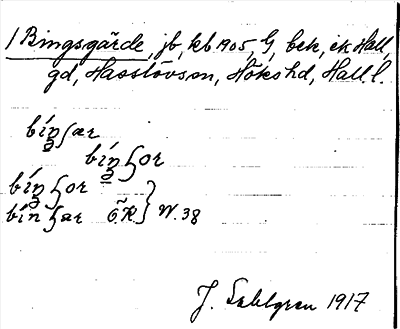 1 Bingsgärde, jb, kb 1905, G, bek, ek Hall,
gd, Hasslövs sn, Höks hd, Hall. l.
bíŋʃær
bíŋʃor
bíŋʃor
bíŋʃar Ö.K. } W. 38
J. Sahlgren 1917